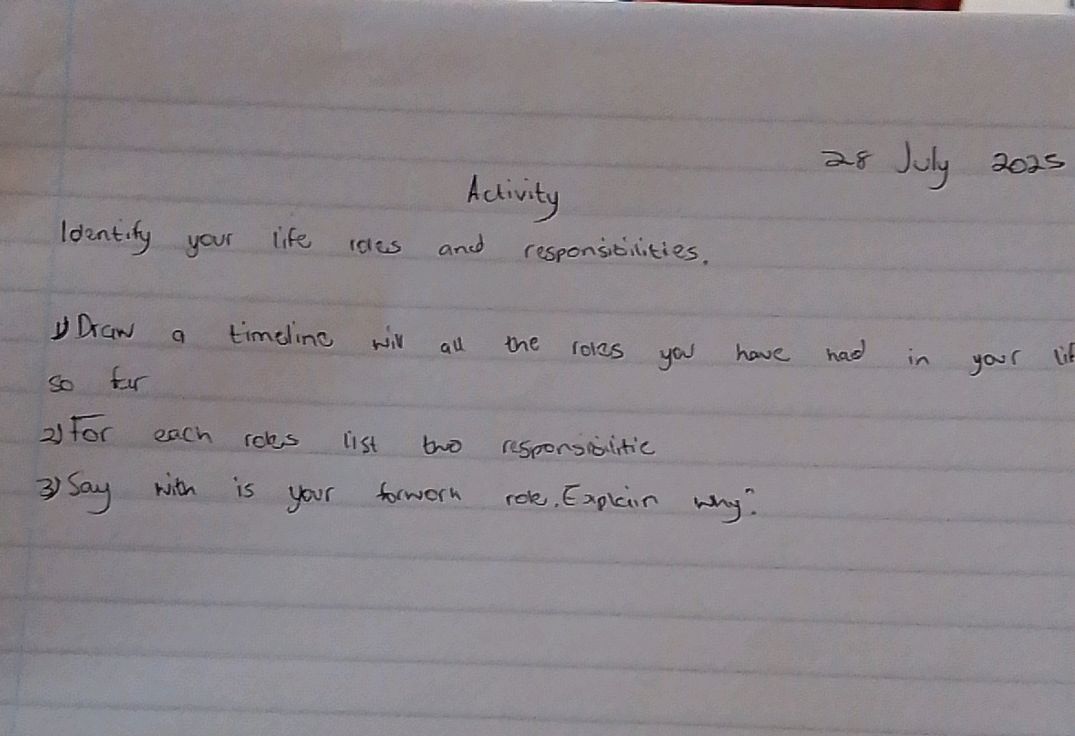 28 July 2025
Activity
Identify your life roles and responsibilities.
1) Draw a timeline will all the roles you have had in your lif
so far
2) For each roles list two responsibilitie
3) Say with is your forworn role. Explain why?